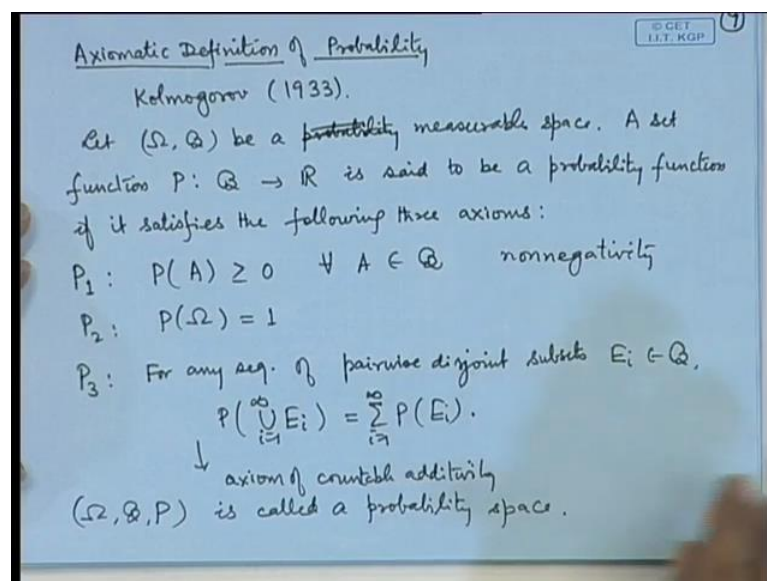 © CET
I.I.T. KGP
9
Axiomatic Definition of Probability
Kolmogorov (1933).
Let (Ω, ℬ) be a probability measurable space. A set
function P: ℬ → ℝ is said to be a probability function
if it satisfies the following three axioms:
P₁: P(A) ≥ 0 ∀ A ∈ ℬ nonnegativity
P₂: P(Ω) = 1
P₃: For any seq. of pairwise disjoint subsets Eᵢ ∈ ℬ,
P(⋃_{i=1}^{∞} Eᵢ) = ∑_{i=1}^{∞} P(Eᵢ).
↓ axiom of countable additivity
(Ω, ℬ, P) is called a probability space.